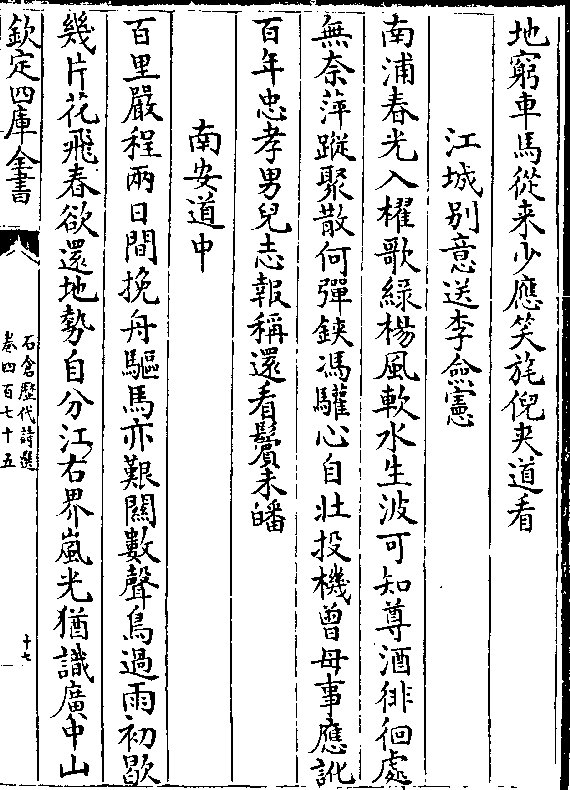 地窮車馬從来少應笑旄倪夾道看
江城别意送李僉憲
南浦春光入櫂歌緑楊風軟水生波可知尊酒徘徊處
無奈萍蹤聚散何彈鋏馮驩心自壯投機曾母事應訛
百年忠孝男兒志報稱還看鬢未皤
南安道中
百里嚴程兩日間挽舟驅馬亦艱關數聲鳥過雨初歇
幾片花飛春欲還地勢自分江右界嵐光猶識廣中山
欽定四庫全書
石倉歷代詩選
卷四百七十五
十七